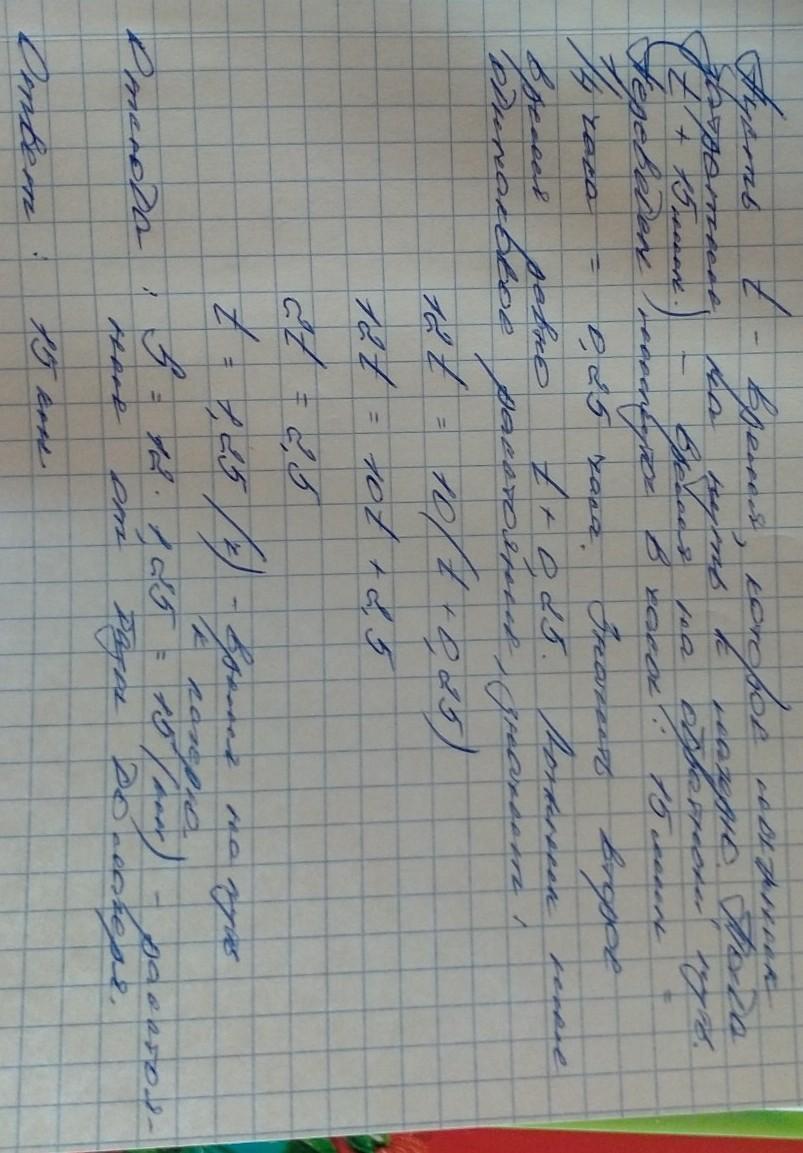 Пусть t - время, которое мальчик
затратил на путь к лагерю. Тогда
(t + 15 мин.) - время на обратный путь.
Переведем минуты в часы: 15 мин =
1/4 часа = 0,25 часа. Значит второе
время равно t + 0,25. Мальчик
одинаковое расстояние, значит,
12t = 10(t + 0,25)
12t = 10t + 2,5
2t = 2,5
t = 1,25 (ч) - время на путь
к лагерю
Отсюда: S = 12 · 1,25 = 15 (км) - расстоя-
ние от до лагеря.
Ответ: 15 км